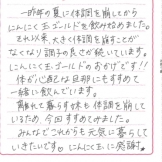 一昨年の夏に体調を崩してから
にんにく玉ゴールドを飲み始めました。
それ以来、大きく体調を崩すことが
なくなり調子の良さが続いています。
にんにく玉ゴールドのおかげです!!
体が心配な旦那にもすすめて
一緒に飲んでいます。
離れて暮らす妹も体調を崩して
いるため、今回すすめてみました。
みんなでこれからも元気に暮らして
いきたいです。にんにく玉に感謝。